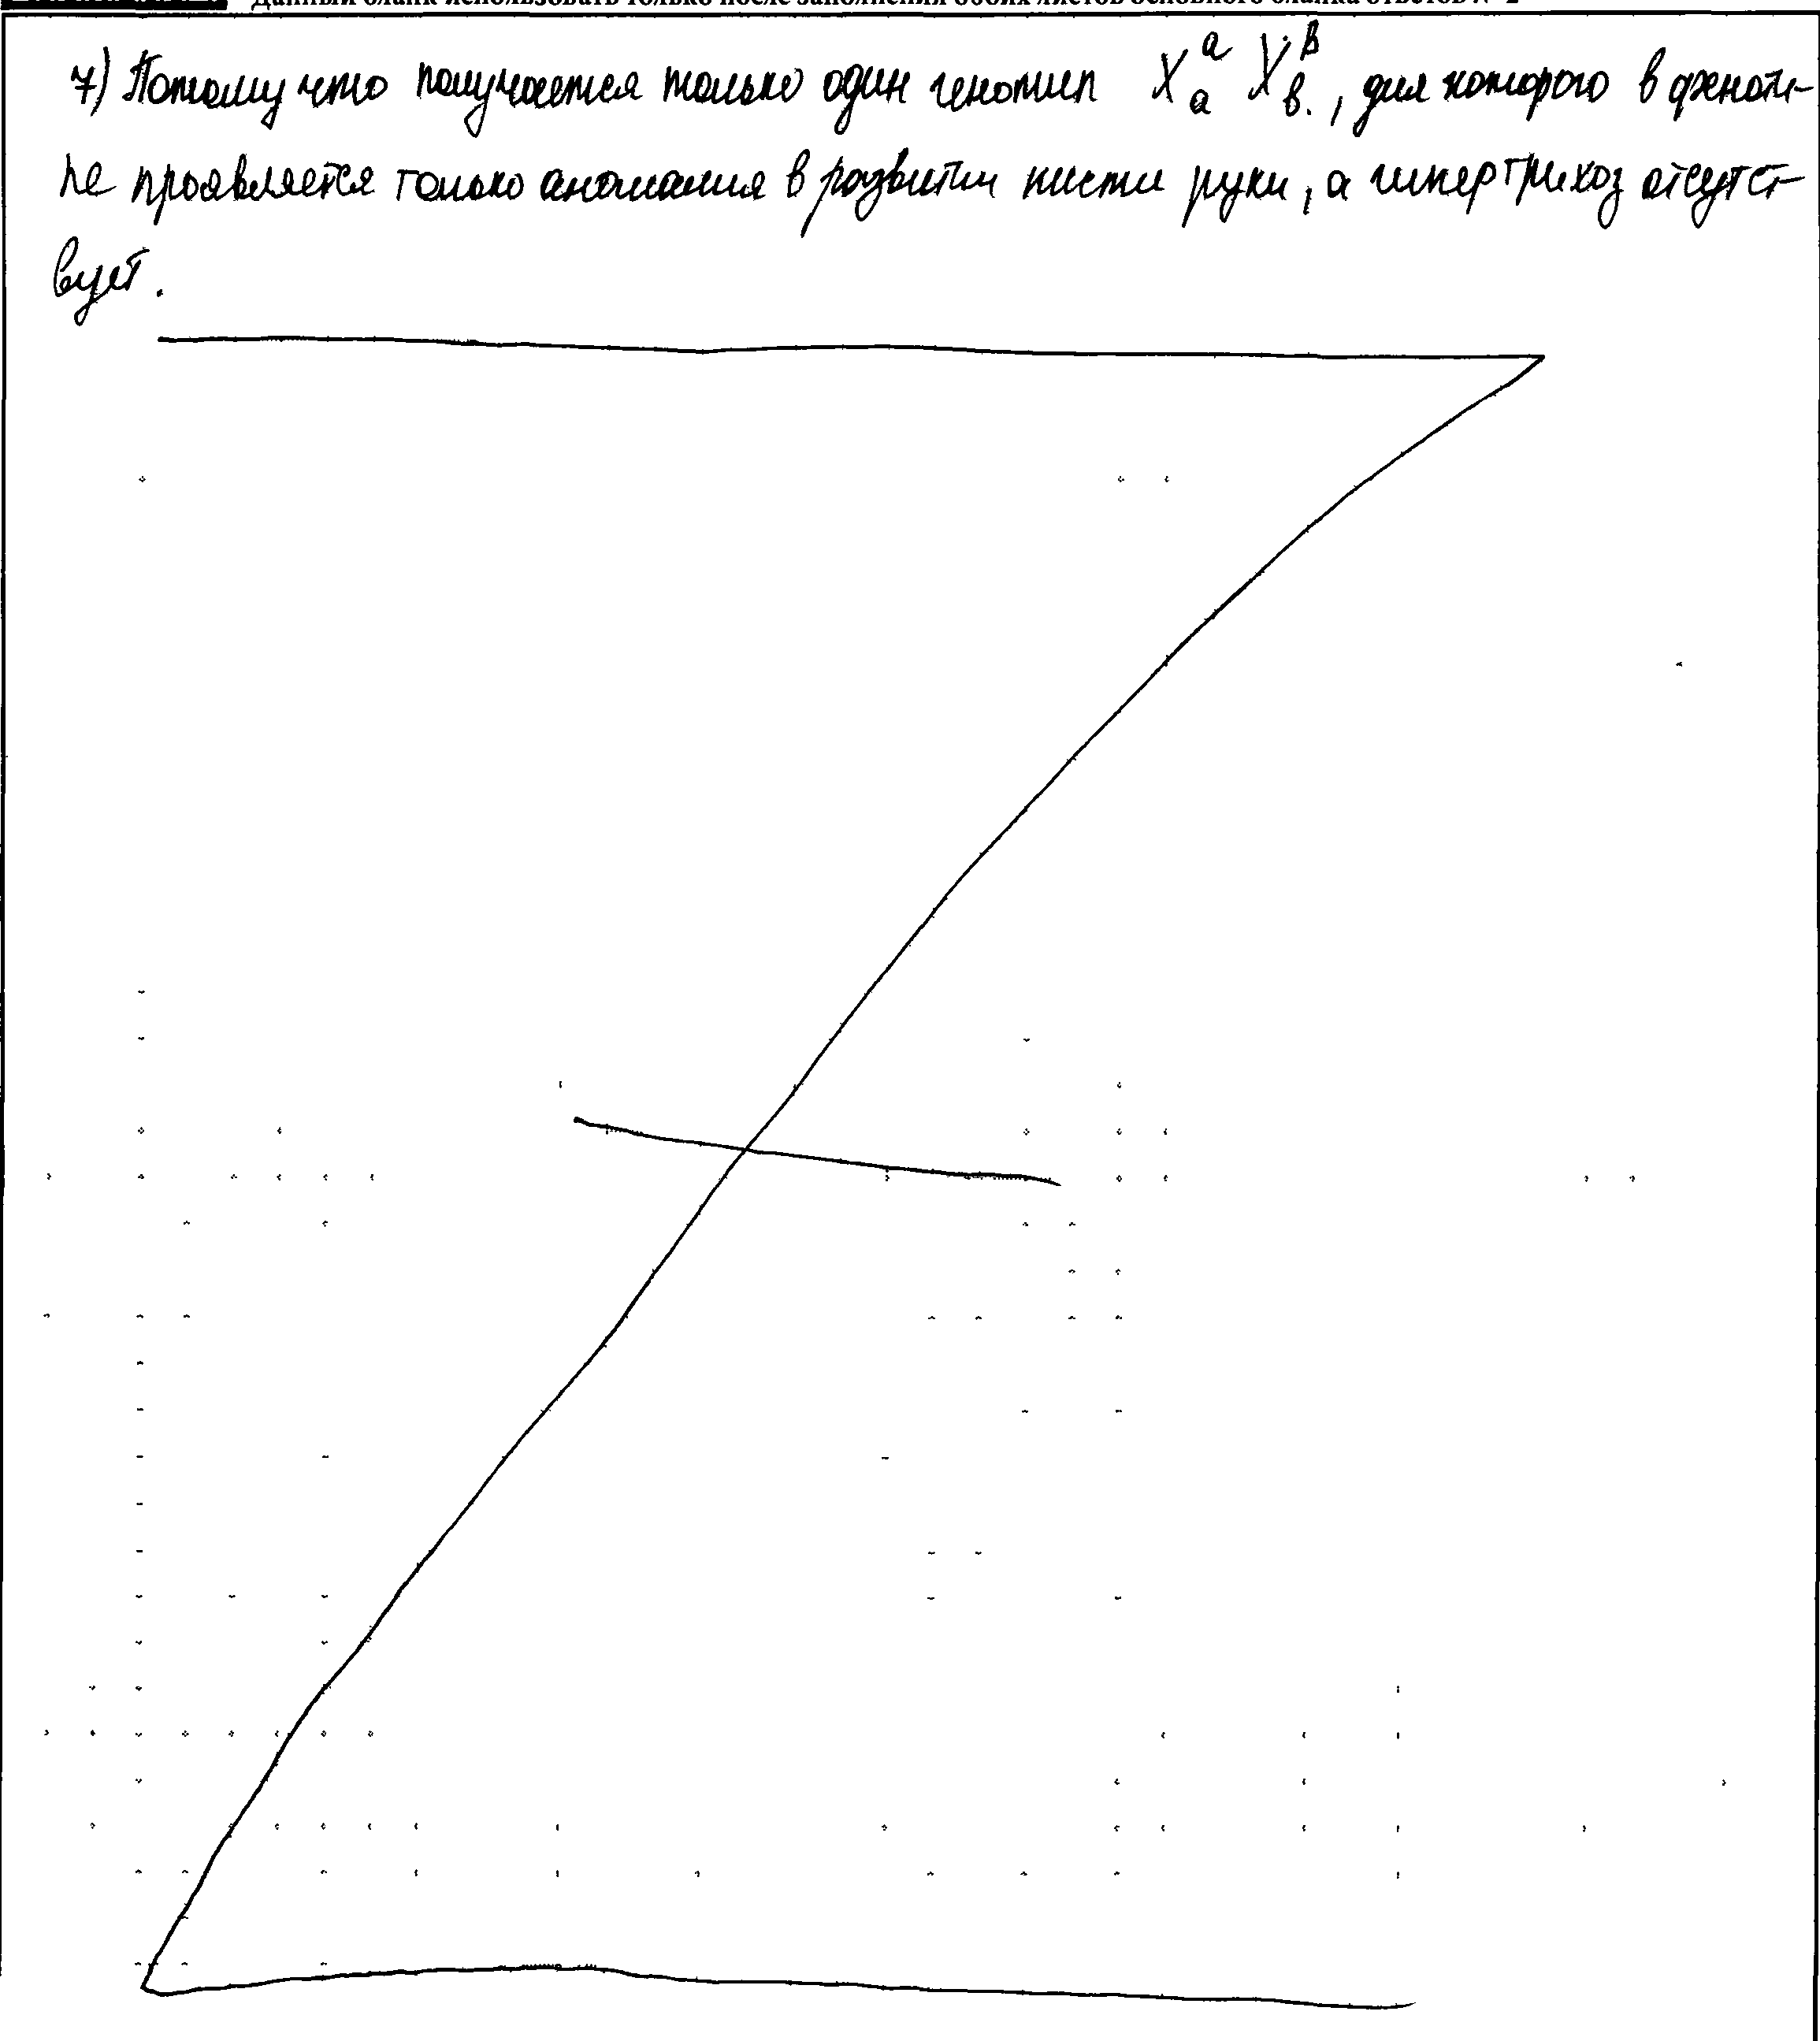 Данный бланк использовать только после заполнения обоих листов основного бланка ответов № 2
7) Потому что получается только один генотип X^a_a X^B_в., для которого в феноти-
пе проявляется только аномалия в развитии кисти руки, а гипертрихоз отсутст-
вует.